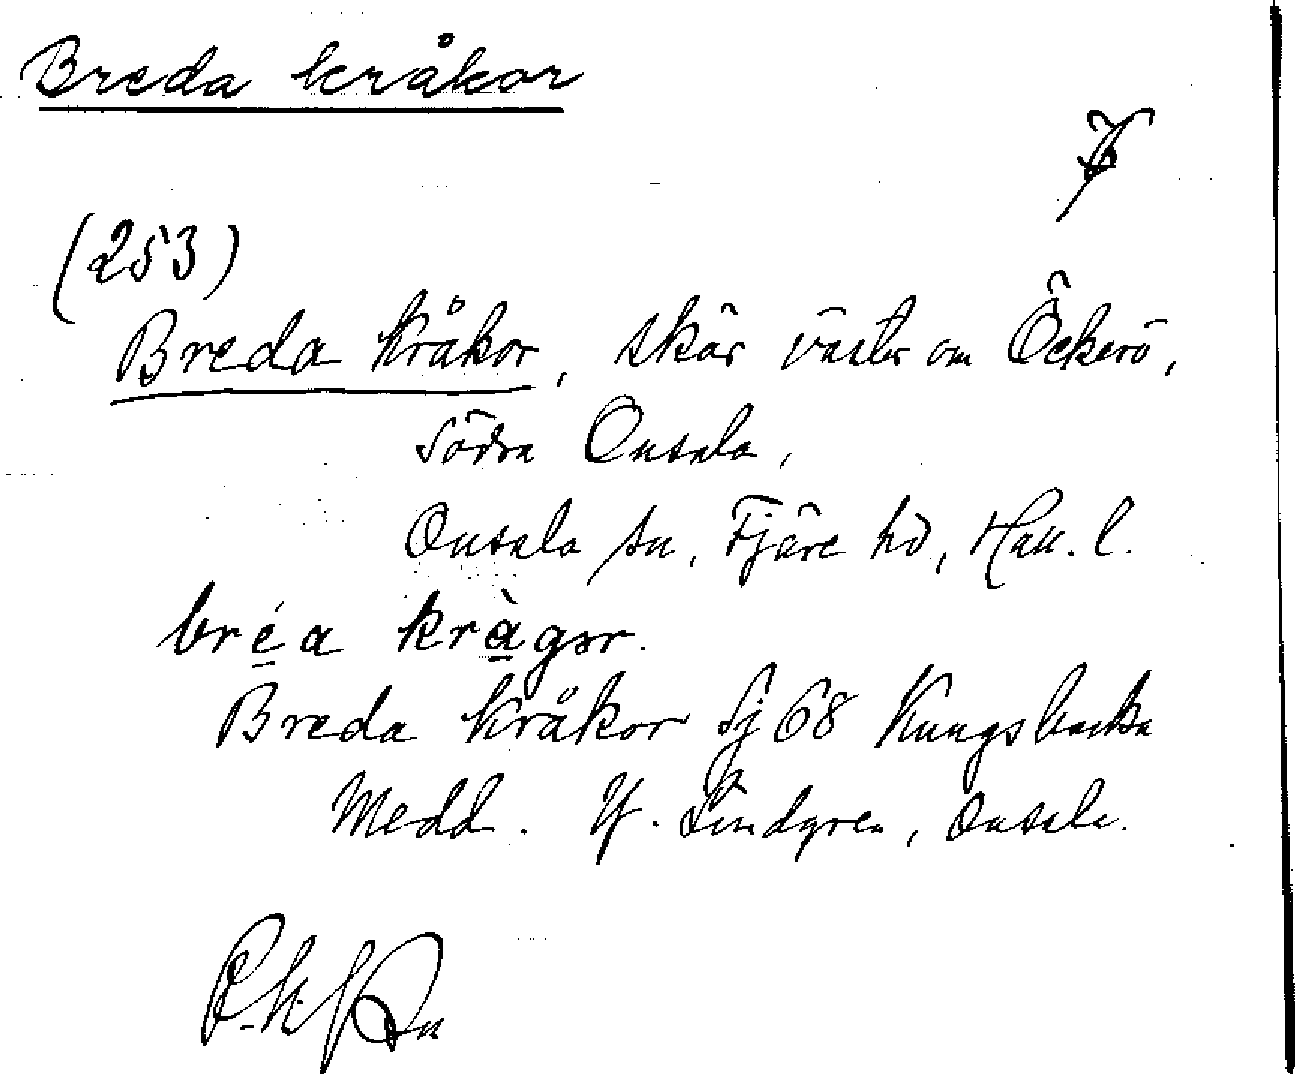 Breda kråkor
(253)
Breda kråkor, skär väster om Öckerö,
södra Onsala,
Onsala sn, Fjäre hd, Hall. l.
bréa kràgər.
Breda kråkor Sj 68 Kungsbacka
Medd. Hj. Lindgren, Onsala.